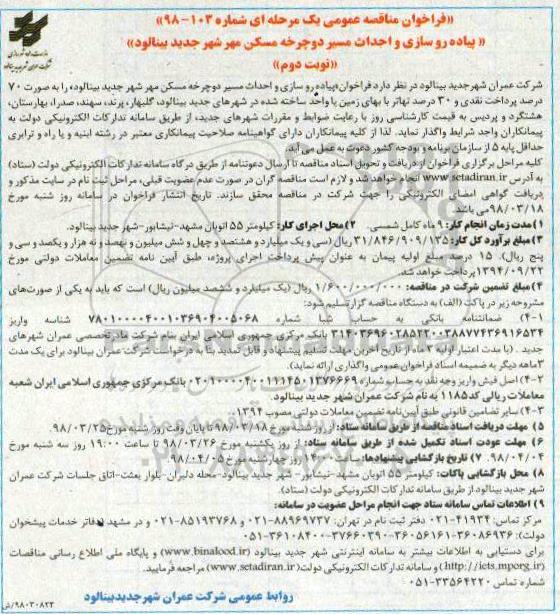 «فراخوان مناقصه عمومی یک مرحله ای شماره ۱۰۳-۹۸»
« پیاده رو سازی و احداث مسیر دوچرخه مسکن مهر شهر جدید بینالود»
«نوبت دوم»
شرکت عمران شهر جدید بینالود در نظر دارد فراخوان«پیاده رو سازی و احداث مسیر دوچرخه مسکن مهر شهر جدید بینالود» را به صورت ۷۰
درصد پرداخت نقدی و ۳۰ درصد تهاتر با بهای زمین یا واحد ساخته شده در شهرهای جدید بینالود، گلبهار، پرند، سهند، صدرا، بهارستان،
هشتگرد و پردیس به قیمت کارشناسی روز با رعایت ضوابط و مقررات شهرهای جدید، از طریق سامانه تدارکات الکترونیکی دولت به
پیمانکاران واجد شرایط واگذار نماید. لذا از کلیه پیمانکاران دارای گواهینامه صلاحیت پیمانکاری معتبر در رشته ابنیه و یا راه و ترابری
حداقل پایه ۵ از سازمان برنامه و بودجه کشور دعوت به عمل می آید.
کلیه مراحل برگزاری فراخوان از دریافت و تحویل اسناد مناقصه تا ارسال دعوتنامه از طریق درگاه سامانه تدارکات الکترونیکی دولت (ستاد)
به آدرس www.setadiran.ir انجام خواهد شد و لازم است مناقصه گران در صورت عدم عضویت قبلی، مراحل ثبت نام در سایت مذکور و
دریافت گواهی امضای الکترونیکی را جهت شرکت در مناقصه محقق سازند. تاریخ انتشار فراخوان در سامانه روز شنبه مورخ
۹۸/۰۳/۱۸ می باشد.
۱) مدت زمان انجام کار: ۹ ماه کامل شمسی. ۲) محل اجرای کار: کیلومتر ۵۵ اتوبان مشهد-نیشابور- شهر جدید بینالود.
۳) مبلغ برآورد کل کار: ۳۱/۸۴۶/۹۰۹/۱۳۵ ریال (سی و یک میلیارد و هشتصد و چهل و شش میلیون و نهصد و نه هزار و یکصد و سی و
پنج ریال). ۱۵ درصد مبلغ اولیه پیمان به عنوان پیش پرداخت اجرای پروژه، طبق آیین نامه تضمین معاملات دولتی مورخ
۱۳۹۴/۰۹/۲۲ پرداخت خواهد شد.
۴) مبلغ تضمین شرکت در مناقصه: ۱/۶۰۰/۰۰۰/۰۰۰ ریال (یک میلیارد و ششصد میلیون ریال) است که باید به یکی از صورت‌های
مشروحه زیر در پاکت (الف) به دستگاه مناقصه گزار تسلیم شود:
۴-۱) ضمانتنامه بانکی به حساب شبا شماره ۷۸۰۱۰۰۰۰۴۰۰۱۰۳۶۹۰۴۰۰۵۰۶۸ شناسه واریز
۳۱۴۰۳۶۹۶۰۲۸۵۲۲۰۰۳۸۸۷۷۴۳۶۹۱۶۵۳۴ بانک مرکزی جمهوری اسلامی ایران بنام شرکت مادر تخصصی عمران شهرهای
جدید . (با مدت اعتبار اولیه ۳ ماه از تاریخ آخرین مهلت تسلیم پیشنهاد و قابل تمدید بنا به درخواست شرکت عمران بینالود برای یک مدت
۳ماهه دیگر به ضمیمه اسناد فراخوان عمومی واگذاری ارائه نماید).
۴-۲) اصل فیش واریز وجه نقد به حساب شماره ۰۲۰۱۰۰۰۰۴۰۰۱۱۱۴۵۰۱۳۷۶۶۶۹ بانک مرکزی جمهوری اسلامی ایران شعبه
معاملات ریالی کد ۱۱۸۵ به نام شرکت عمران شهر جدید بینالود.
۴-۳) سایر تضامین قانونی طبق آیین نامه تضمین معاملات دولتی مصوب ۱۳۹۴.
۵) مهلت دریافت اسناد مناقصه از طریق سامانه ستاد: از روز شنبه مورخ ۹۸/۰۳/۱۸ تا پایان وقت روز شنبه مورخ ۹۸/۰۳/۲۵.
۶) مهلت عودت اسناد تکمیل شده از طریق سامانه ستاد: از روز یکشنبه مورخ ۹۸/۰۳/۲۶ تا ساعت ۱۹:۰۰ روز سه شنبه مورخ
۹۸/۰۴/۰۴. ۷) تاریخ بازگشایی پیشنهادها: ساعت ۱۴:۰۰ روز چهارشنبه مورخ ۹۸/۰۴/۰۵.
۸) محل بازگشایی پاکات: کیلومتر ۵۵ اتوبان مشهد-نیشابور- شهر جدید بینالود-محله دلبران-بلوار بعثت-اتاق جلسات شرکت عمران
شهر جدید بینالود از طریق سامانه تدارکات الکترونیکی دولت (ستاد).
۹) اطلاعات تماس سامانه ستاد جهت انجام مراحل عضویت در سامانه:
مرکز تماس: ۴۱۹۳۴-۰۲۱ دفتر ثبت نام در تهران: ۸۸۹۶۹۷۳۷-۰۲۱ و ۸۵۱۹۳۷۶۸-۰۲۱ و در مشهد دفاتر خدمات پیشخوان
دولت: ۳۶۰۸۶۹۳۶-۳۶۰۵۶۱۶۱-۳۷۶۶۰۳۹۰-۳۶۱۰۸۴۰۰-۰۵۱
برای دستیابی به اطلاعات بیشتر به سامانه اینترنتی شهر جدید بینالود (www.binalood.ir) و پایگاه ملی اطلاع رسانی مناقصات
(http://iets.mporg.ir) و سامانه تدارکات الکترونیکی دولت (www.setadiran.ir) مراجعه فرمایید.
شماره تماس ۳۳۵۶۴۲۲۰-۰۵۱
روابط عمومی شرکت عمران شهر جدید بینالود
۹۸۰۳۰۸۲۳/ش